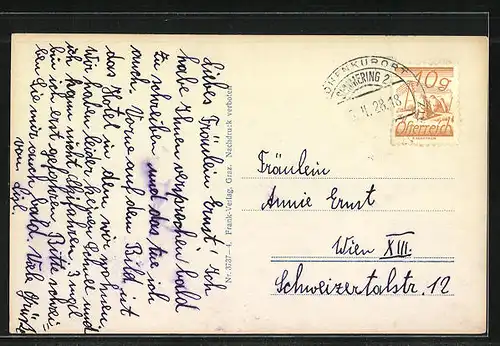 Liebes Fräulein Ernst! Ich
habe Ihnen versprochen bald
zu schreiben und das tue ich
auch. Vorne auf dem Bild ist
das Hotel in dem wir wohnen.
Wir haben leider keinen Schnee und
ich kann nicht Skifahren.
bin ich erst gefahren. Bitte schrei-
ben Sie mir auch bald. Viele Grüße
von
Nr. 3737-4. Frank-Verlag, Graz. Nachdruck verboten
HÖHENKURORT
SEMMERING 2
II.28.18
40g
Österreich
Fräulein
Annie Ernst
Wien XIII.
Schweizertalstr. 12